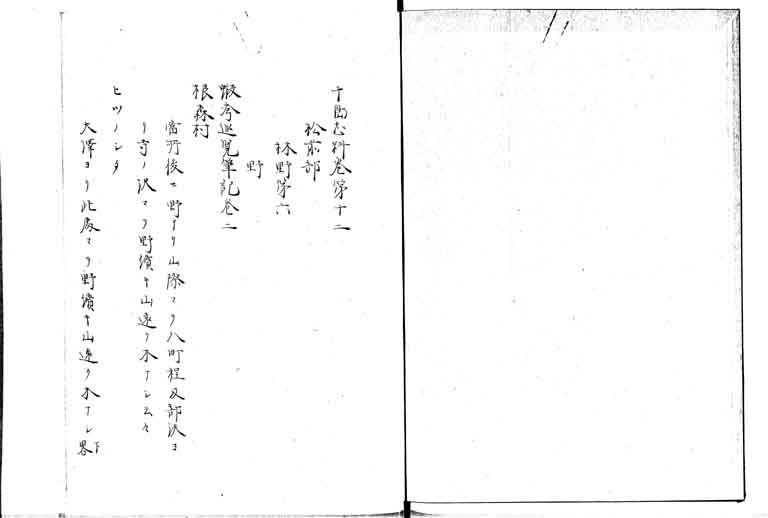 十勝志料巻第十二
松前部
林野第六
野
蝦夷巡覧筆記巻二
根森村
當所後ニ野アリ山際マテ八町程又部沢ヨ
リ寺ノ沢マテ野續キ山遠ク木ナシ云々
ヒツノシタ
大澤ヨリ此處マテ野續キ山遠ク木ナシ下畧